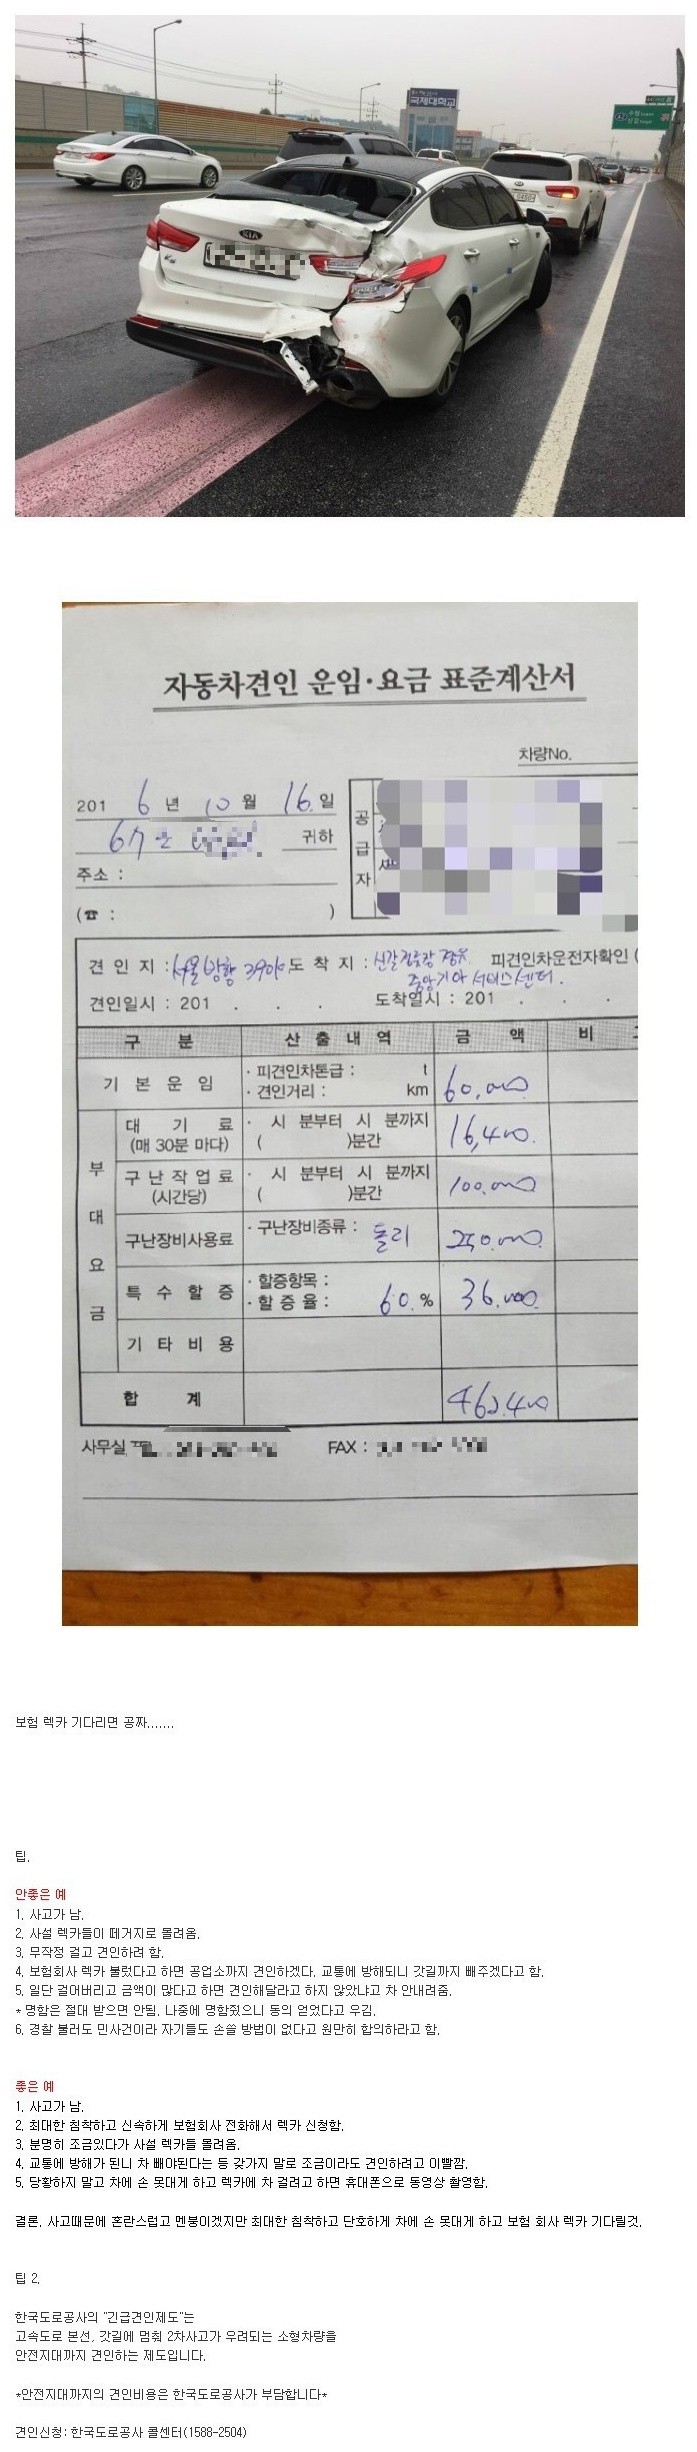 국제대학교
KIA
자동차견인 운임·요금 표준계산서
차량No.
201 6 년 10 월 16 일
귀하
공급자
주소 :
(☎ : )
견 인 지 : 서울방향 도 착 지 : 신갈 피견인차운전자확인 (
중앙기아 서비스센터.
견인일시 : 201 . . . 도착일시 : 201 . . .
구 분 산 출 내 역 금 액 비
기 본 운 임 · 피견인차톤급 : t
· 견인거리 : km 60,000
부대요금
대 기 료 · 시 분부터 시 분까지 16,400.
(매 30분 마다) ( )분간
구 난 작 업 료 · 시 분부터 시 분까지 100,000
(시간당) ( )분간
구난장비사용료 · 구난장비종류 : 돌리 250,000
특 수 할 증 · 할증항목 :
· 할 증 율 : 60. % 36,000.
기 타 비 용
합 계 462,400
사무실 FAX :
보험 렉카 기다리면 공짜.......
팁.
안좋은 예
1. 사고가 남.
2. 사설 렉카들이 떼거지로 몰려옴.
3. 무작정 걸고 견인하려 함.
4. 보험회사 렉카 불렀다고 하면 공업소까지 견인하겠다. 교통에 방해되니 갓길까지 빼주겠다고 함.
5. 일단 걸어버리고 금액이 많다고 하면 견인해달라고 하지 않았냐고 차 안내려줌.
* 명함은 절대 받으면 안됨. 나중에 명함줬으니 동의 얻었다고 우김.
6. 경찰 불러도 민사건이라 자기들도 손쓸 방법이 없다고 원만히 합의하라고 함.
좋은 예
1. 사고가 남.
2. 최대한 침착하고 신속하게 보험회사 전화해서 렉카 신청함.
3. 분명히 조금있다가 사설 렉카들 몰려옴.
4. 교통에 방해가 된니 차 빼야된다는 등 갖가지 말로 조금이라도 견인하려고 이빨깜.
5. 당황하지 말고 차에 손 못대게 하고 렉카에 차 걸려고 하면 휴대폰으로 동영상 촬영함.
결론. 사고때문에 혼란스럽고 멘붕이겠지만 최대한 침착하고 단호하게 차에 손 못대게 하고 보험 회사 렉카 기다릴것.
팁 2.
한국도로공사의 "긴급견인제도"는
고속도로 본선, 갓길에 멈춰 2차사고가 우려되는 소형차량을
안전지대까지 견인하는 제도입니다.
*안전지대까지의 견인비용은 한국도로공사가 부담합니다*
견인신청: 한국도로공사 콜센터(1588-2504)